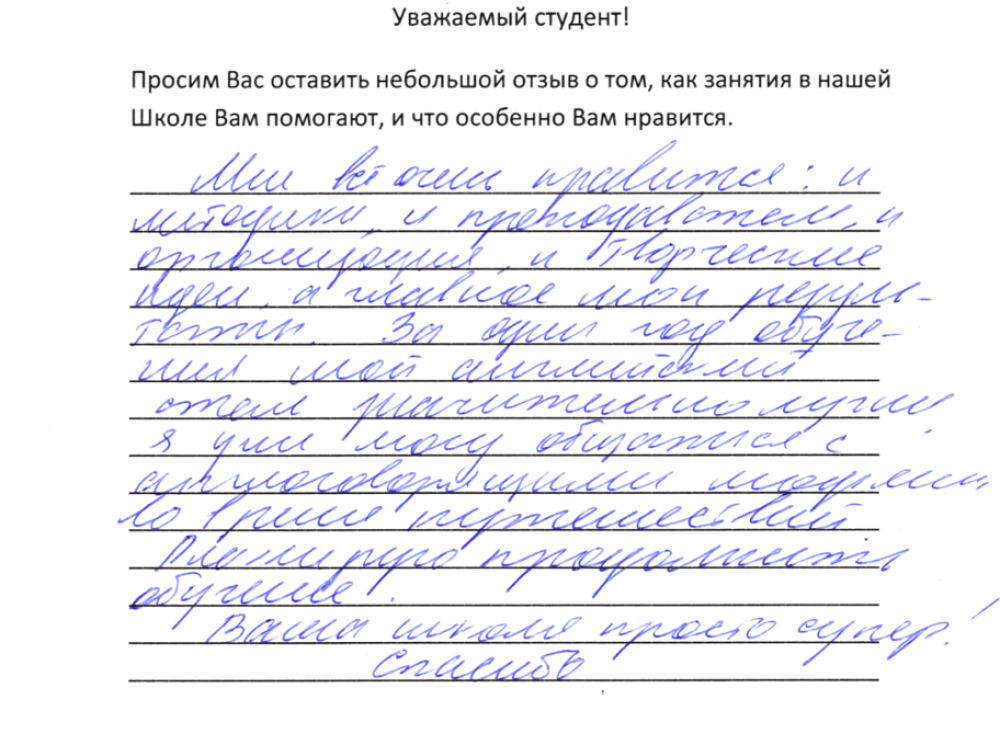 Уважаемый студент!
Просим Вас оставить небольшой отзыв о том, как занятия в нашей
Школе Вам помогают, и что особенно Вам нравится.
Мне всё очень нравится: и
методики, и преподаватели, и
организация, и творческие
идеи, а главное мои резуль-
таты. За один год обуче-
ния мой английский
стал значительно лучше,
я уже могу общаться с
англоговорящими людьми
во время путешествий
Планирую продолжить
обучение.
Ваша школа просто супер!
Спасибо